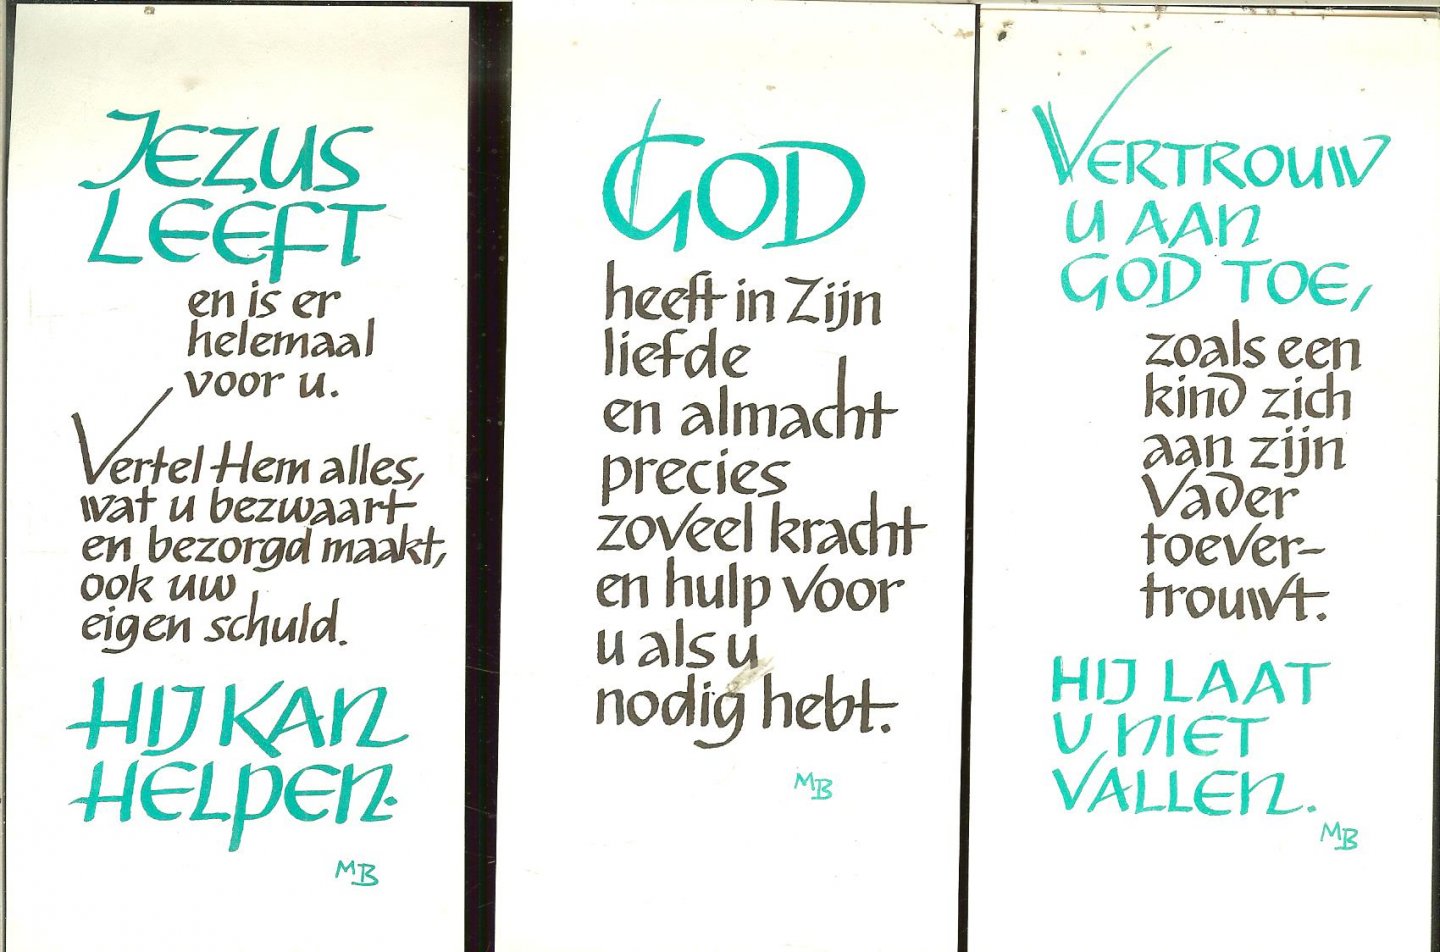 JEZUS
LEEFT
en is er
helemaal
voor u.
Vertel Hem alles,
wat u bezwaart
en bezorgd maakt,
ook uw
eigen schuld.
HIJ KAN
HELPEN.
MB
GOD
heeft in Zijn
liefde
en almacht
precies
zoveel kracht
en hulp voor
u als u
nodig hebt.
MB
VERTROUW
U AAN
GOD TOE,
zoals een
kind zich
aan zijn
Vader
toever-
trouwt.
HIJ LAAT
U NIET
VALLEN.
MB